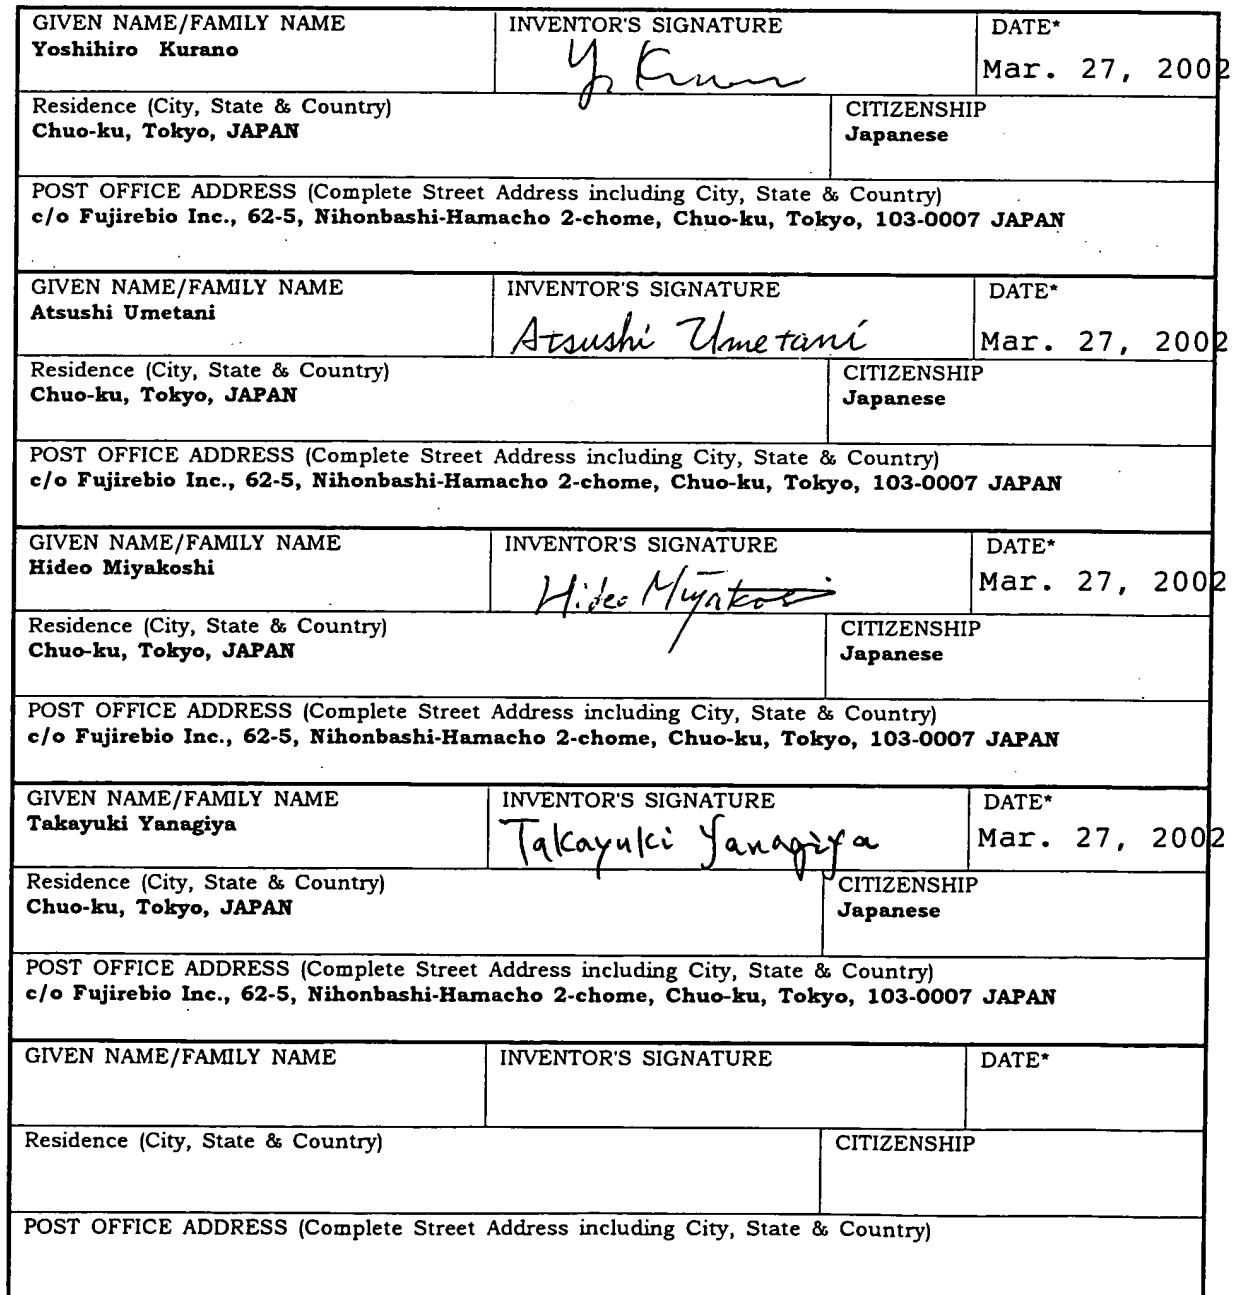 GIVEN NAME/FAMILY NAME INVENTOR'S SIGNATURE DATE*
Yoshihiro Kurano
Y. Kurano Mar. 27, 2002
Residence (City, State & Country) CITIZENSHIP
Chuo-ku, Tokyo, JAPAN Japanese
POST OFFICE ADDRESS (Complete Street Address including City, State & Country)
c/o Fujirebio Inc., 62-5, Nihonbashi-Hamacho 2-chome, Chuo-ku, Tokyo, 103-0007 JAPAN
GIVEN NAME/FAMILY NAME INVENTOR'S SIGNATURE DATE*
Atsushi Umetani
Atsushi Umetani Mar. 27, 2002
Residence (City, State & Country) CITIZENSHIP
Chuo-ku, Tokyo, JAPAN Japanese
POST OFFICE ADDRESS (Complete Street Address including City, State & Country)
c/o Fujirebio Inc., 62-5, Nihonbashi-Hamacho 2-chome, Chuo-ku, Tokyo, 103-0007 JAPAN
GIVEN NAME/FAMILY NAME INVENTOR'S SIGNATURE DATE*
Hideo Miyakoshi
Hideo Miyakosi Mar. 27, 2002
Residence (City, State & Country) CITIZENSHIP
Chuo-ku, Tokyo, JAPAN Japanese
POST OFFICE ADDRESS (Complete Street Address including City, State & Country)
c/o Fujirebio Inc., 62-5, Nihonbashi-Hamacho 2-chome, Chuo-ku, Tokyo, 103-0007 JAPAN
GIVEN NAME/FAMILY NAME INVENTOR'S SIGNATURE DATE*
Takayuki Yanagiya
Takayuki Yanagiya Mar. 27, 2002
Residence (City, State & Country) CITIZENSHIP
Chuo-ku, Tokyo, JAPAN Japanese
POST OFFICE ADDRESS (Complete Street Address including City, State & Country)
c/o Fujirebio Inc., 62-5, Nihonbashi-Hamacho 2-chome, Chuo-ku, Tokyo, 103-0007 JAPAN
GIVEN NAME/FAMILY NAME INVENTOR'S SIGNATURE DATE*
Residence (City, State & Country) CITIZENSHIP
POST OFFICE ADDRESS (Complete Street Address including City, State & Country)